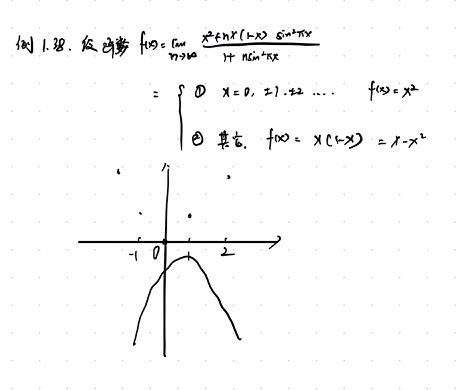 例 1.38. 设函数 f(x) = lim n→∞ x²+nx(1-x) sin²πx / 1+ nsin²πx
= { ① x=0, ±1, ±2 .... f(x)= x²
② 其它. f(x)= x(1-x) = x-x²
-1 0 1 2